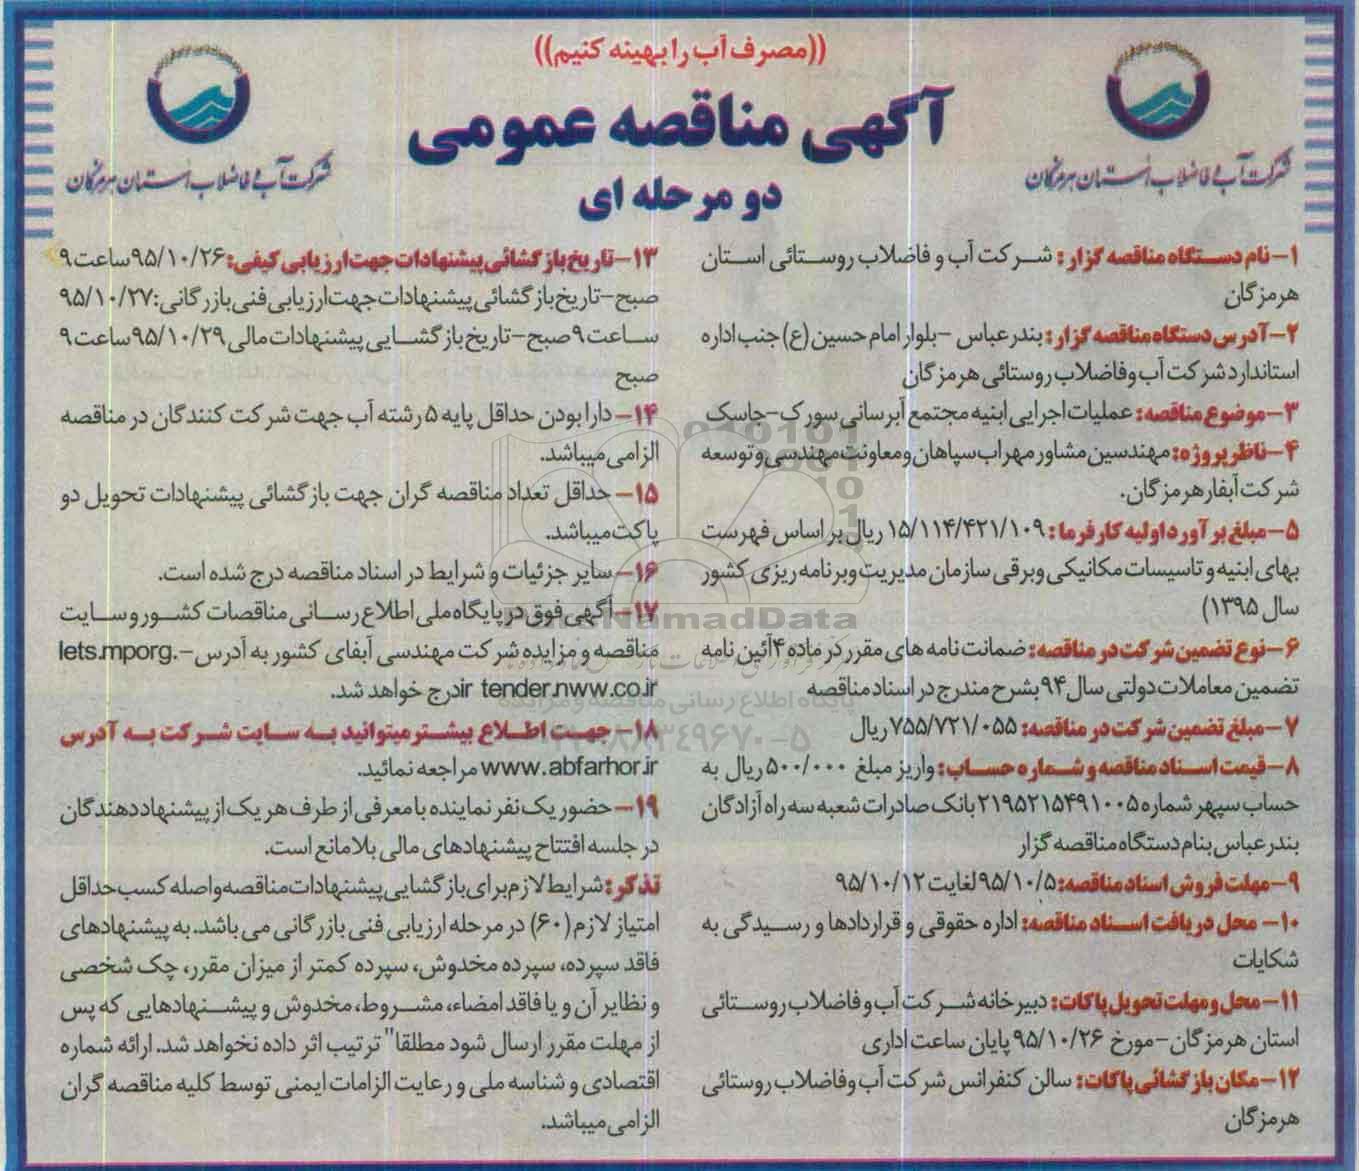 ((مصرف آب را بهینه کنیم))
آگهی مناقصه عمومی
دو مرحله ای
شرکت آب و فاضلاب استان هرمزگان
شرکت آب و فاضلاب استان هرمزگان
۱- نام دستگاه مناقصه گزار : شرکت آب و فاضلاب روستائی استان
هرمزگان
۲- آدرس دستگاه مناقصه گزار : بندرعباس - بلوار امام حسین (ع) جنب اداره
استاندارد شرکت آب و فاضلاب روستائی هرمزگان
۳- موضوع مناقصه : عملیات اجرایی ابنیه مجتمع آبرسانی سورک - جاسک
۴- ناظر پروژه : مهندسین مشاور مهراب سپاهان و معاونت مهندسی و توسعه
شرکت آبفار هرمزگان.
۵- مبلغ برآورد اولیه کارفرما : ۱۵/۱۱۴/۴۲۱/۱۰۹ ریال بر اساس فهرست
بهای ابنیه و تاسیسات مکانیکی و برقی سازمان مدیریت و برنامه ریزی کشور
سال ۱۳۹۵)
۶- نوع تضمین شرکت در مناقصه : ضمانت نامه های مقرر در ماده ۴ آئین نامه
تضمین معاملات دولتی سال ۹۴ بشرح مندرج در اسناد مناقصه
۷- مبلغ تضمین شرکت در مناقصه : ۷۵۵/۷۲۱/۰۵۵ ریال
۸- قیمت اسناد مناقصه و شماره حساب : واریز مبلغ ۵۰۰/۰۰۰ ریال به
حساب سپهر شماره ۲۱۹۵۲۱۵۴۹۱۰۰۵ بانک صادرات شعبه سه راه آزادگان
بندرعباس بنام دستگاه مناقصه گزار
۹- مهلت فروش اسناد مناقصه : ۹۵/۱۰/۵ لغایت ۹۵/۱۰/۱۲
۱۰- محل دریافت اسناد مناقصه : اداره حقوقی و قراردادها و رسیدگی به
شکایات
۱۱- محل و مهلت تحویل پاکات : دبیرخانه شرکت آب و فاضلاب روستائی
استان هرمزگان - مورخ ۹۵/۱۰/۲۶ پایان ساعت اداری
۱۲- مکان بازگشائی پاکات : سالن کنفرانس شرکت آب و فاضلاب روستائی
هرمزگان
۱۳- تاریخ بازگشائی پیشنهادات جهت ارزیابی کیفی : ۹۵/۱۰/۲۶ ساعت ۹
صبح - تاریخ بازگشائی پیشنهادات جهت ارزیابی فنی بازرگانی : ۹۵/۱۰/۲۷
ساعت ۹ صبح - تاریخ بازگشایی پیشنهادات مالی ۹۵/۱۰/۲۹ ساعت ۹
صبح
۱۴- دارا بودن حداقل پایه ۵ رشته آب جهت شرکت کنندگان در مناقصه
الزامی میباشد.
۱۵- حداقل تعداد مناقصه گران جهت بازگشائی پیشنهادات تحویل دو
پاکت میباشد.
۱۶- سایر جزئیات و شرایط در اسناد مناقصه درج شده است.
۱۷- آگهی فوق در پایگاه ملی اطلاع رسانی مناقصات کشور و سایت
مناقصه و مزایده شرکت مهندسی آبفای کشور به آدرس - iets.mporg.
ir tender.nww.co.ir درج خواهد شد.
۱۸- جهت اطلاع بیشتر میتوانید به سایت شرکت به آدرس
www.abfarhor.ir مراجعه نمائید.
۱۹- حضور یک نفر نماینده با معرفی از طرف هر یک از پیشنهاد دهندگان
در جلسه افتتاح پیشنهادهای مالی بلامانع است.
تذکر : شرایط لازم برای بازگشایی پیشنهادات مناقصه واصله کسب حداقل
امتیاز لازم (۶۰) در مرحله ارزیابی فنی بازرگانی می باشد. به پیشنهادهای
فاقد سپرده، سپرده مخدوش، سپرده کمتر از میزان مقرر، چک شخصی
و نظایر آن و یا فاقد امضاء، مشروط، مخدوش و پیشنهادهایی که پس
از مهلت مقرر ارسال شود مطلقا" ترتیب اثر داده نخواهد شد. ارائه شماره
اقتصادی و شناسه ملی و رعایت الزامات ایمنی توسط کلیه مناقصه گران
الزامی میباشد.
NamadData
پایگاه اطلاع رسانی مناقصه و مزایده
۸۸۳۴۹۶۷۰-۵